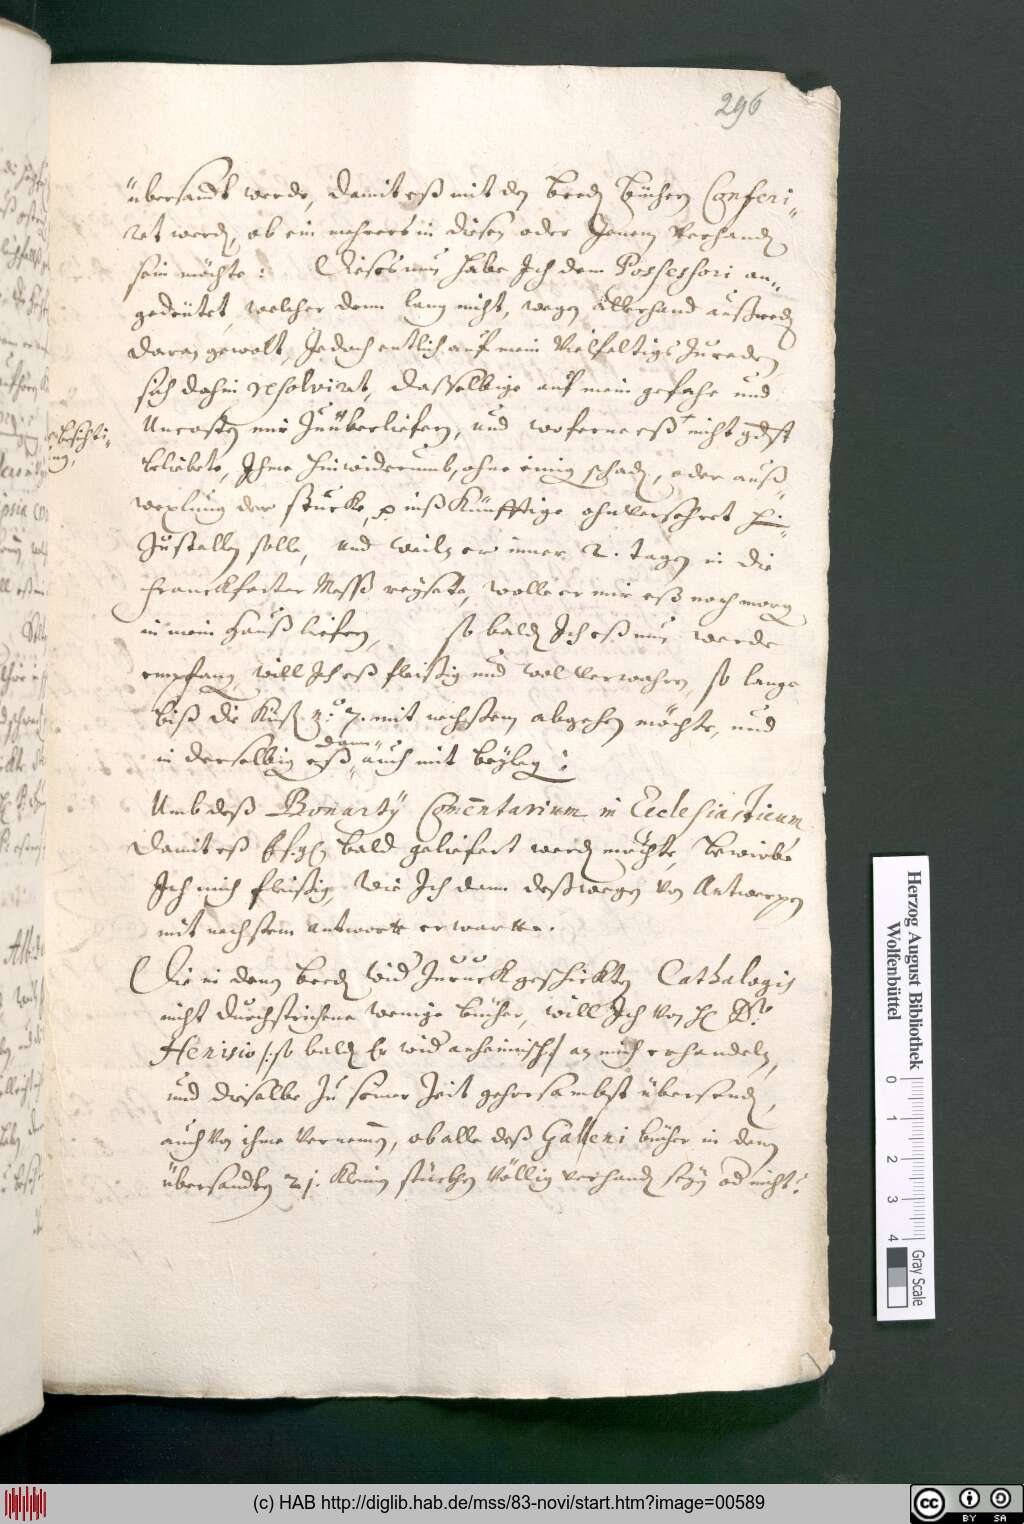 296
übersandt werde, damit eß mit den beeden büchern Conferi-
ret werden, ob ein mehrers in diesem oder Jenem verhanden
sein möchte: Dieses nun habe Ich dem Possessori an-
gedeütet, welcher denn lang nicht, wegen allerhand außreden
daran gewolt, Jedoch entlich auf mein vielfaltigs Zureden
sich dahin resolvirt, dasselbige auf mein gefahr und
Uncosten mir Zuüberliefern, und woferne eß nicht
beliebete, Ihme hinwiderumb, ohne einig schaden, oder auß-
wexlung der stucke, inß Künfftige ohnversehret
Zustellen solle, und weiln er inner 2. tagen in die
Franckforter Mess reysete, wolle er mir eß noch morgen
in mein Hauß liefern, so balden Ich eß nun werde
empfangen, will Ich eß fleissig und wol verwahren, so lange
biß die Kist N.º 7. mit nechstem abgehen möchte, und
in derselbigen eß dann auch mit beylegen:
Umb deß Bonartÿ Comentarium in Ecclesiasticum
damit eß bald geliefert werden möchte, bewirbe
Ich mich fleissig, Wie Ich dann deßwegen von Antwerpen
mit nechstem antwortt erwartte.
Die in denen beeden wider Zuruck geschickten Cathalogis
nicht durchstrichene wenige bücher, will Ich von H. Dr.
Henisio /:so balden Er wider anheimisch:/ an mich erhandeln,
und dieselbe Zu seiner Zeit gehorsambst übersenden,
auch von ihme vernemen, ob alle deß Galleni bücher in denen
übersandten 21. kleinen stückhen völlig verhanden seyen oder nicht:
Herzog August Bibliothek
Wolfenbüttel
0 1 2 3 4
Gray Scale
(c) HAB http://diglib.hab.de/mss/83-novi/start.htm?image=00589
cc BY SA